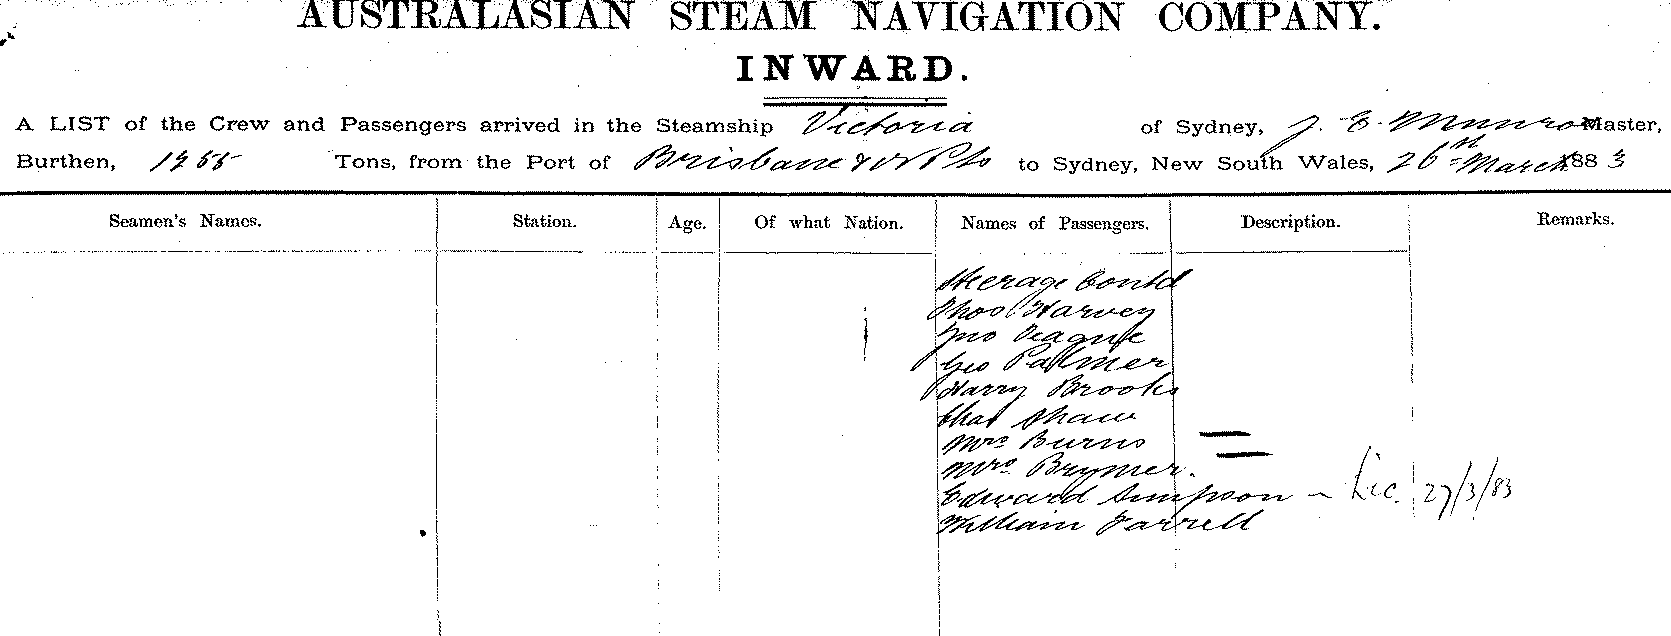 AUSTRALASIAN STEAM NAVIGATION COMPANY.
INWARD.
A LIST of the Crew and Passengers arrived in the Steamship Victoria of Sydney, J. E. Munro Master,
Burthen, 1255 Tons, from the Port of Brisbane & N Pts to Sydney, New South Wales, 26th March 1883
Seamen's Names. Station. Age. Of what Nation. Names of Passengers. Description. Remarks.
Steerage Contd
Thos Harvey
Jno Teague
Geo Palmer
Harry Brooks
Chas Shaw
Mrs Burns
Mrs Brymer.
Edward Simpson - Lic. 27/3/83
William Farrell